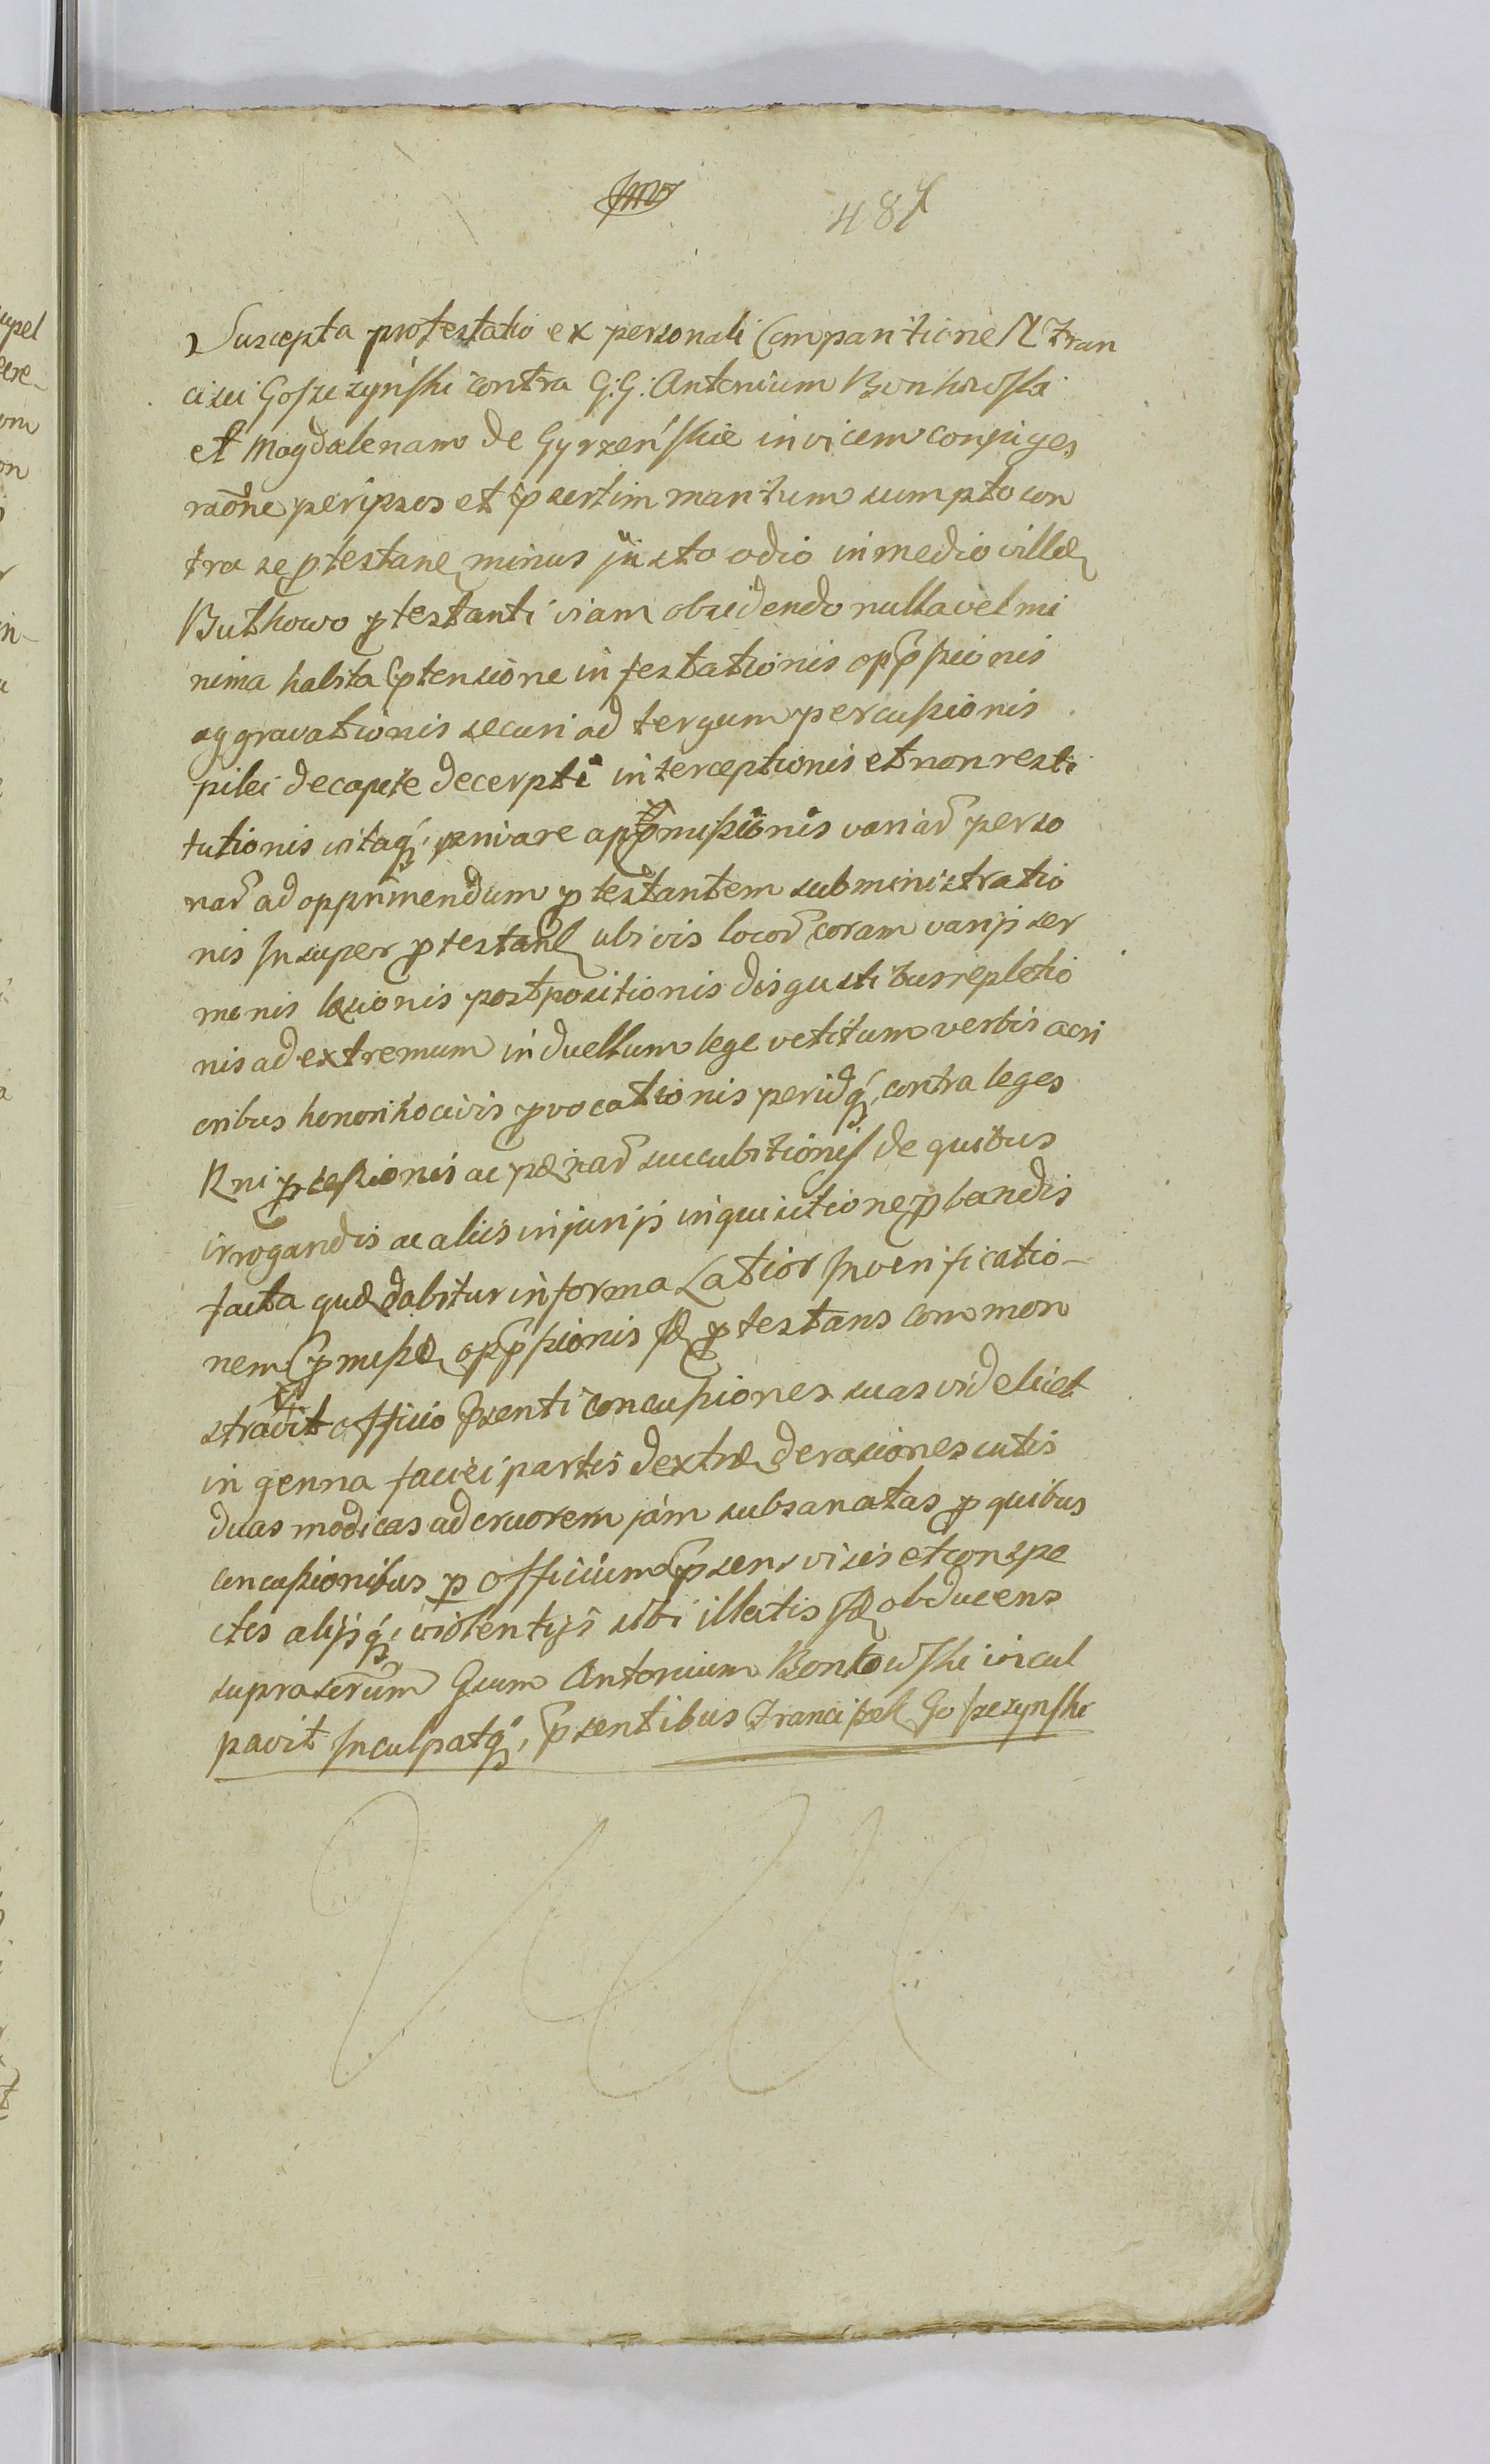 487
Suscepta protestatio ex personali Comparitione N Fran
cisci Goszczyński contra G: G: Antonium Bonkowski
et Magdalenam de Gyrzeńskie invicem conjuges
raōne per ipsos et p̄sertim maritum sumpto con
tra se ptestane minus justo odio in medio villæ
Buthowo ptestanti viam obsidendo nulla vel mi
nima habita p̄tensione infestationis opp̄ssionis
aggravationis securi ad tergum percussionis
pilei de capite decerpti interceptionis et non resti
tutionis vitaq́; privare appromissionis variar̄ perso
nar̄ ad opprimendum ptestantem subministratio
nis Insuper ptestane ubivis locor̄ coram varijs ser
monis læsionis postpositionis disgustibus repletio
nis ad extremum in duellum lege vetitum verbis acri
oribus honori nocivis pvocationis peridq́; contra leges
Rni pcessionis ac pænar̄ succubitionis de quibus
irrogandis ac aliis injurijs inquisitione pbandis
facta quæ dabitur in forma Latior In verificatio-
nem p̄missæ opp̄ssionis sæ ptestans common
stravit officio p̄senti concussiones suas videlicet
in genna faciei partis dextræ derasiones cutis
duas modicas ad cruorem jam subsanatas p quibus
concussionibus p officium p̄sens visis et conspe
ctis alijsq́; violentijs sibi illatis sæ obducens
suprascrūm Gsum Antonium Bonkowski incul
pavit Inculpatq́; p̄sentibus Franciszek Goszczynski